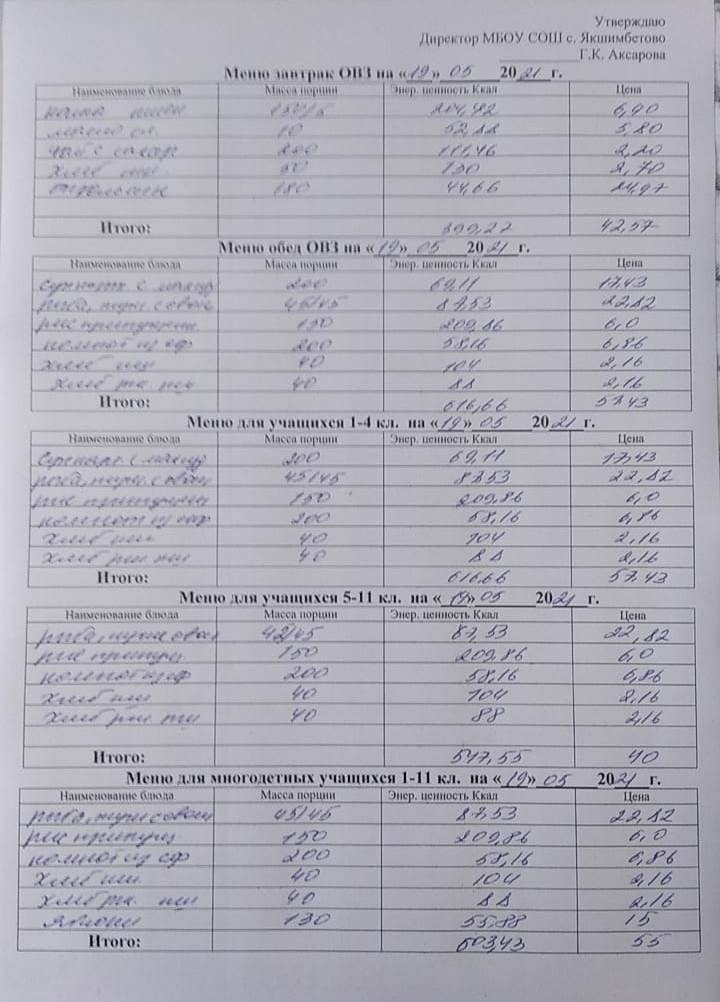 Утверждаю
Директор МБОУ СОШ с. Якшимбетово
Г.К. Аксарова
Меню завтрак ОВЗ на «19» 05 2021 г.
Наименование блюда Масса порции Энер. ценность Ккал Цена
каша пшен 150/5 204,42 6,90
масло сл. 10 52,88 5,80
чай с сахар 200 111,46 2,20
хлеб пш. 50 130 2,70
апельсин 180 44,66 24,97
Итого: 42,57
Меню обед ОВЗ на «19» 05 2021 г.
Наименование блюда Масса порции Энер. ценность Ккал Цена
с макар 200 69,11 17,43
рыба, туш. с овощ 45/45 87,53 22,82
рис припущен. 150 209,86 6,0
компот из сф 200 58,16 6,86
хлеб пш 40 104 2,16
хлеб рж. пш 40 88 2,16
Итого: 616,66 57,43
Меню для учащихся 1-4 кл. на «19» 05 2021 г.
Наименование блюда Масса порции Энер. ценность Ккал Цена
с макар 200 69,11 17,43
рыба, туш. с овощ 45/45 87,53 22,82
рис припущен 150 209,86 6,0
компот из сф 200 58,16 6,86
хлеб пш 40 104 2,16
хлеб рж. пш 40 88 2,16
Итого: 616,66 57,43
Меню для учащихся 5-11 кл. на «19» 05 2021 г.
Наименование блюда Масса порции Энер. ценность Ккал Цена
рыба, туш с овощ 45/45 87,53 22,82
рис припущ 150 209,86 6,0
компот из сф 200 58,16 6,86
хлеб пш 40 104 2,16
хлеб рж. пш 40 88 2,16
Итого: 547,55 40
Меню для многодетных учащихся 1-11 кл. на «19» 05 2021 г.
Наименование блюда Масса порции Энер. ценность Ккал Цена
рыба, туш с овощ 45/45 87,53 22,82
рис припущ 150 209,86 6,0
компот из сф 200 58,16 6,86
хлеб пш. 40 104 2,16
хлеб рж. пш 40 88 2,16
яблоки 130 55,88 15
Итого: 603,43 55